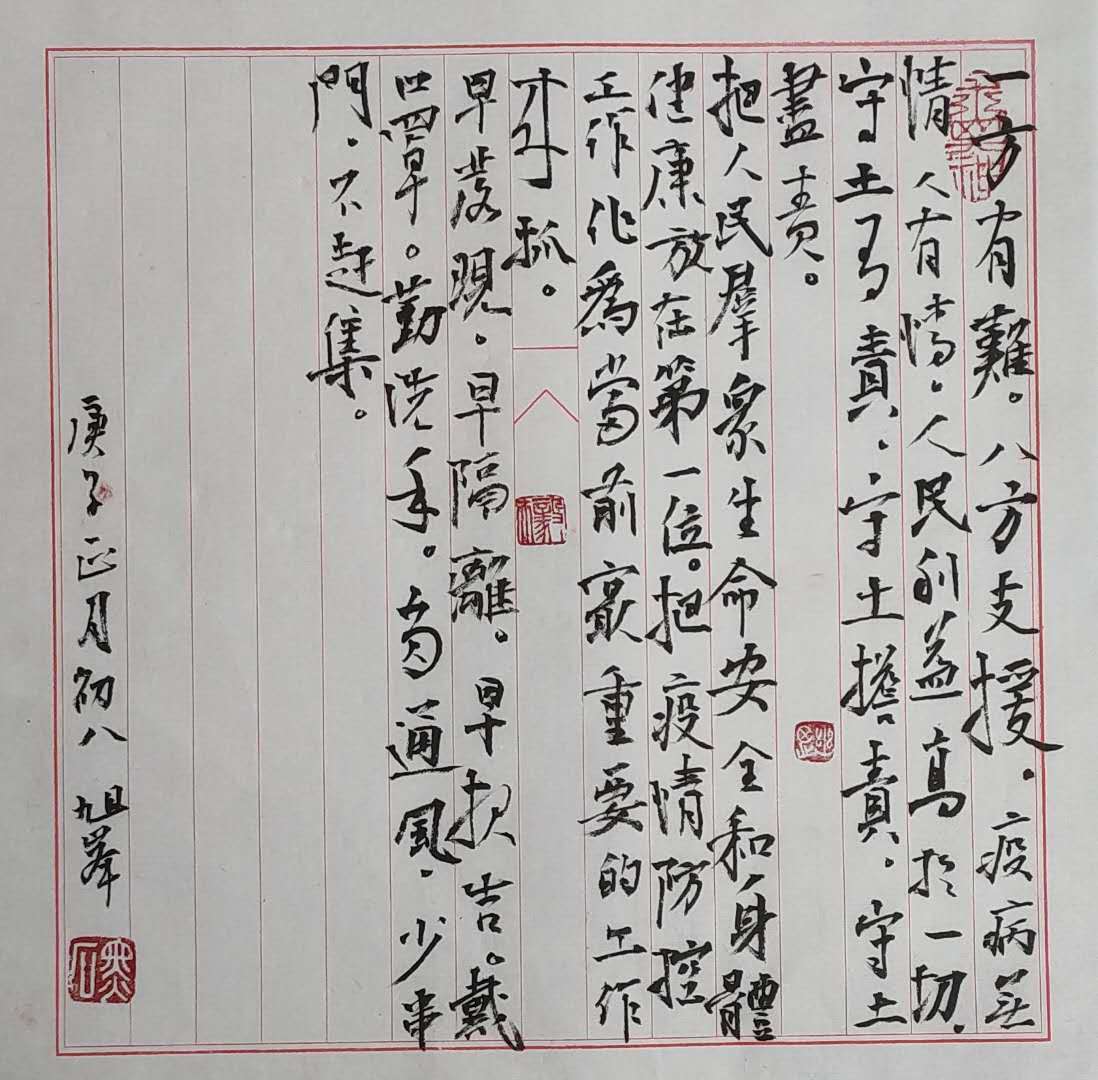 一方有難。八方支援。疫病無
情人有情。人民利益高於一切.
守土有責、守土擔責。守土
盡責。
把人民羣衆生命安全和身體
健康放在第一位。把疫情防控
工作作爲當前最重要的工作
抓。
早發現。早隔離。早報告。戴
口罩。勤洗手。多通風、少串
門、不趕集。
庚子正月初八 旭峯